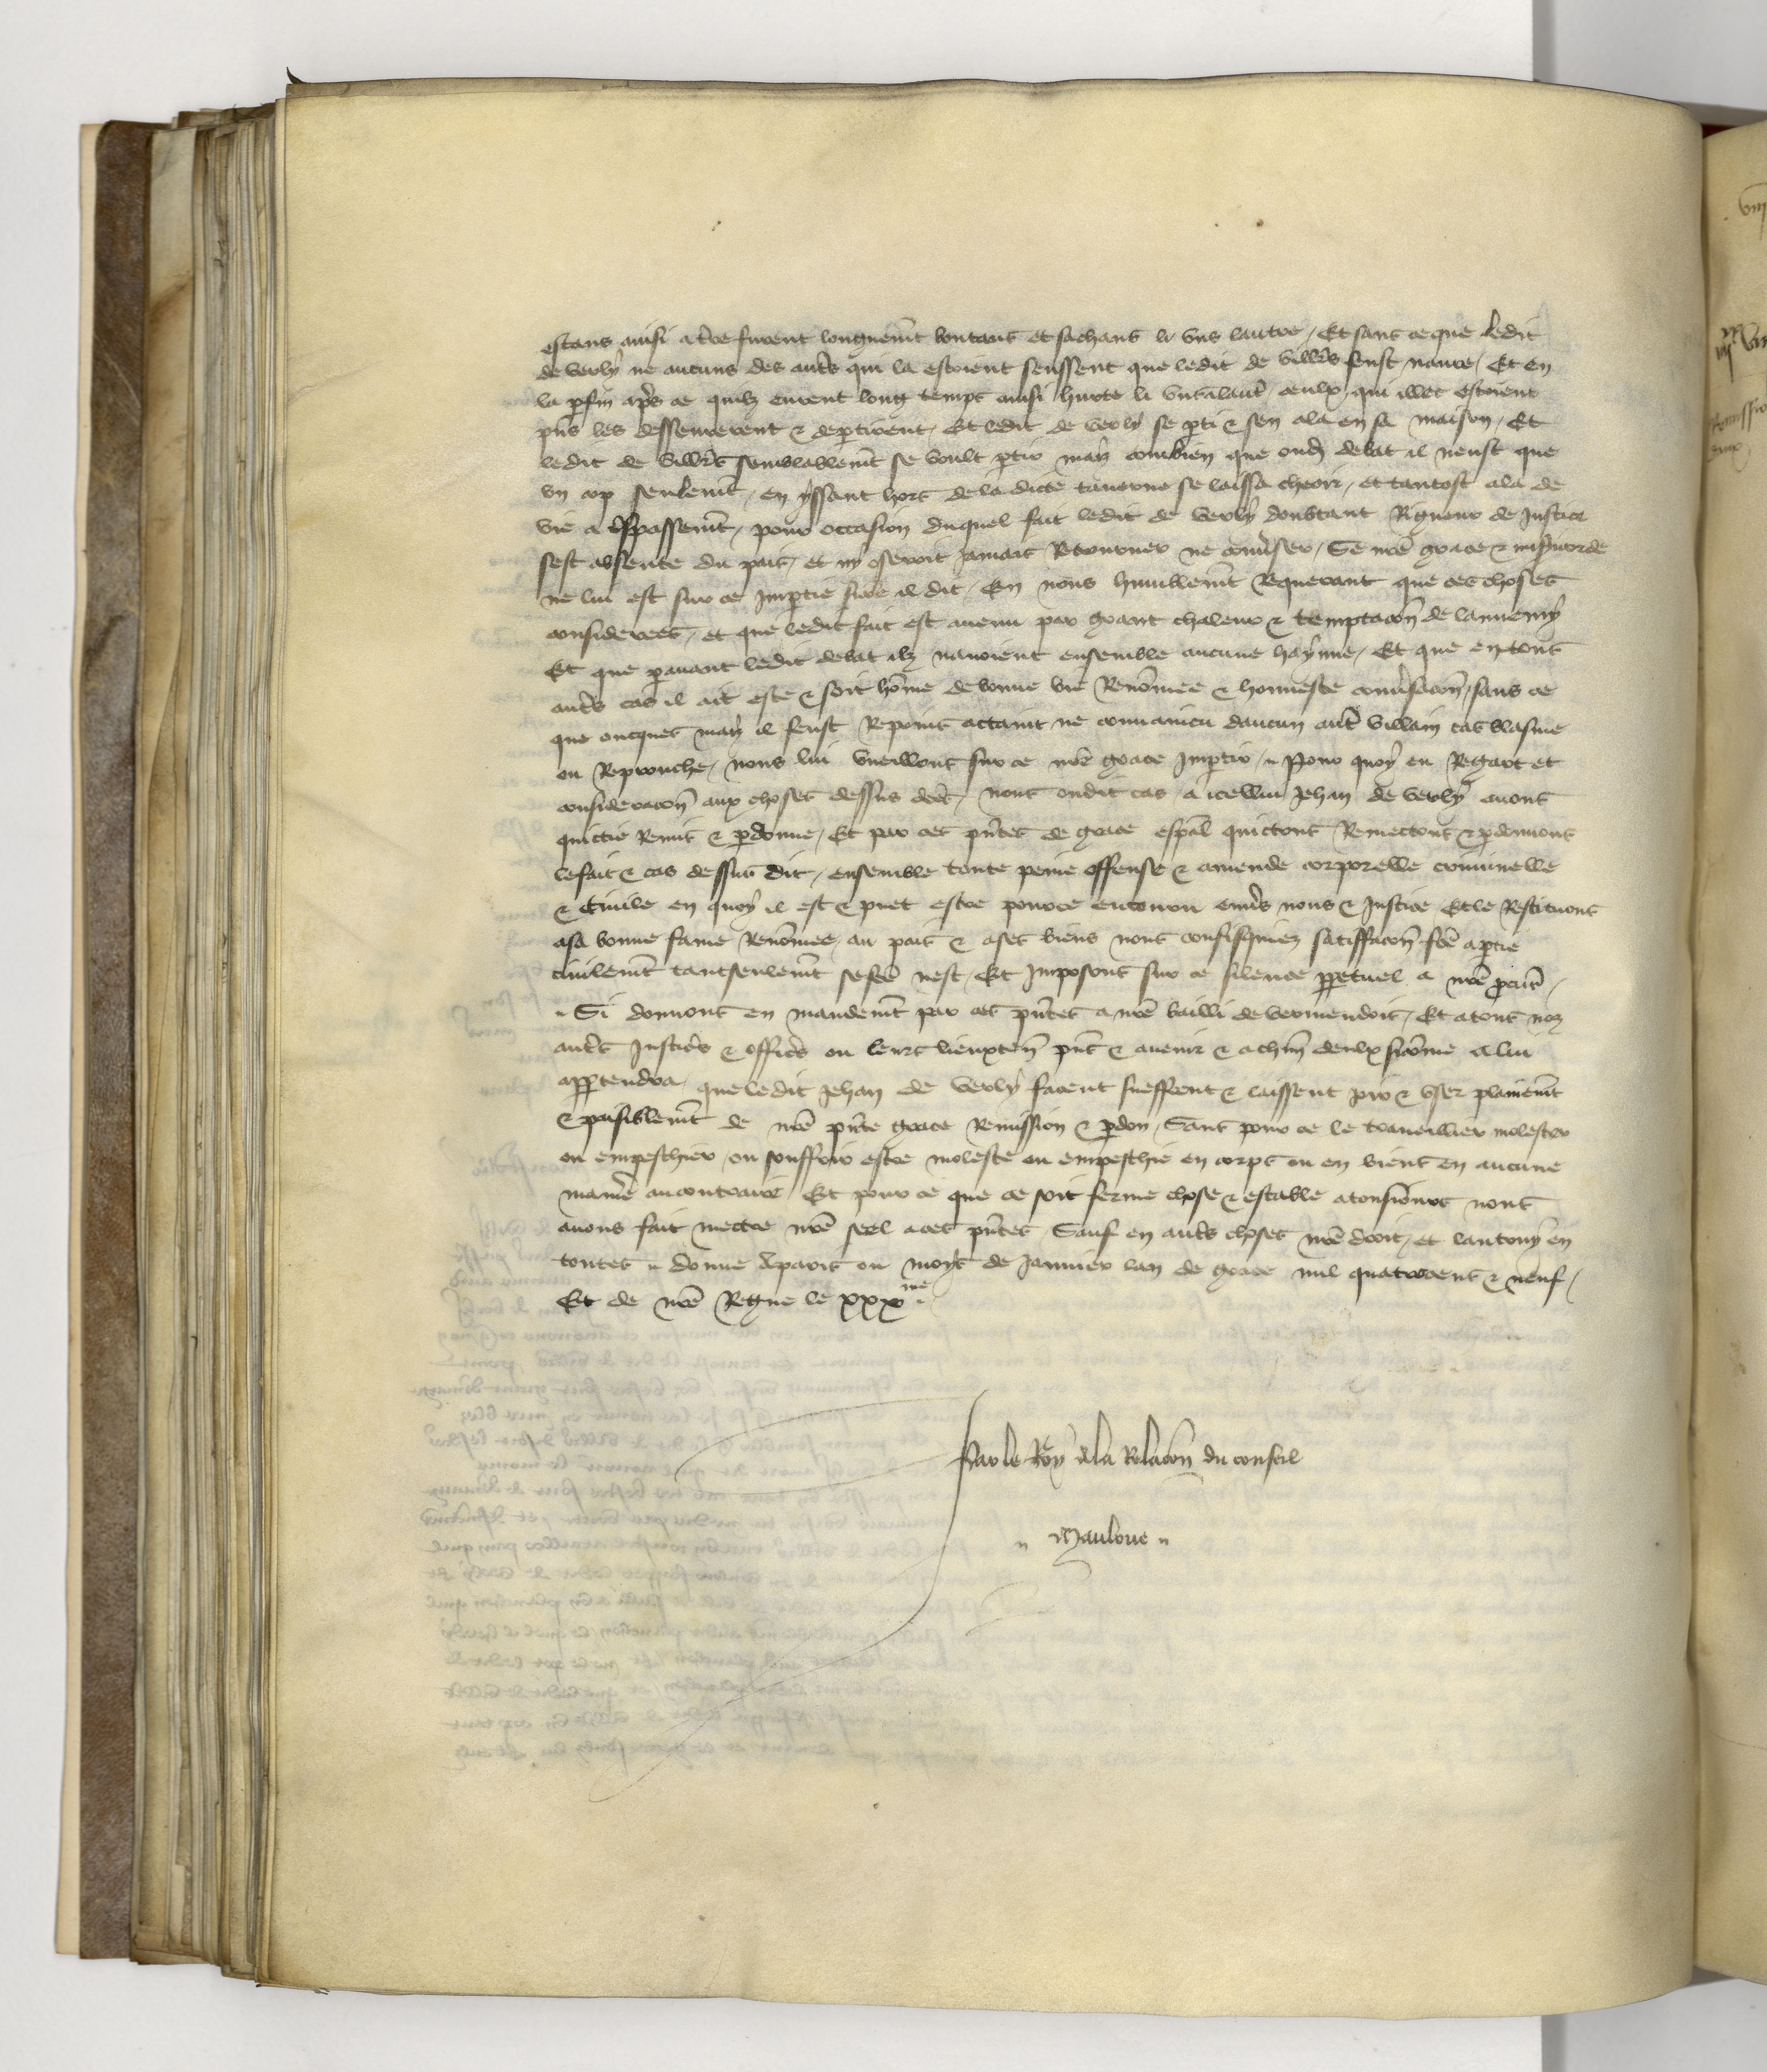 estans ainsi a t̃re furent longuem̃t boutans et sachans li uns lautre / Et sans ce que ledit
de verly ne aucuns des aut̃s qui la estoient sceussent que ledit de Vill̃rs feust navre / Et en
la p̃fin ap̃s ce quilz eurent long temps ainsi hurte li uns a laut̃ ceulx qui illec estoient
p̃ns les dessevrerent & dep̃tirent / Et ledit de verly se p̃ti & sen ala en sa maison / Et
ledit de Vill̃rs semblablem̃t se voult p̃tir maiz combien que oud̃ debat il neust que
un cop seulem̃t / en yssant hors de la dicte taverne se laissa cheoir / et tantost ala de
vie a t̃spassem̃t / pour occasion duquel fait ledit de verly doubtant Rigueur de Justice
sest absente du pais / et ny oseroit Jamais Retourner ne conṽser / Se nr̃e grace & mis̃icorde
ne lui est sur ce Imp̃tie sicõe il dit / En nous humblem̃t Requerant que ces choses
considerees / et que ledit fait est avenu par grant chaleur & temptacõn de lannemy
Et que p̃avant ledit debat ilz navoient ensemble aucune hayne / Et que en tous
aut̃s cas il ait este & soit hõme de bonne vie Renõmee & honneste conṽsacõn / sans ce
que oncques maiz il feust Reprins actaint ne convaincu daucun aut̃ villain cas blasme
ou Reprouche / nous lui vueillons sur ce nr̃e grace Imp̃tir // Pour quoy en Regart et
consideracõn aux choses dessus dc̃es / nous oudit cas a icellui Jehan de verly avons
quictie Remis & p̃donne / Et par ces p̃ntes de grace esp̃al quictons Remectons & p̃donnons
le fait & cas dessus dit / ensemble toute peine offense & amende corporelle criminelle
& Civile en quoy il est & puet estre pource encouru enṽs nous & Justice Et le Restituons
a sa bonne fame Renõmee au pais & a ses biens non confisquiez satisfacõn fc̃e a p̃tie
civilem̃t tantseulem̃t se fc̃e nest / Et Imposons sur ce silence p̃petuel a nr̃e p̃cur̃ /
// Si donnons en mandem̃t par ces p̃ntes a nr̃e bailli de vermendois / Et a tous noz
aut̃s Justic̃s & offic̃s ou leurs lieuxten̄ p̃ns & avenir & a ch̃un deulx si cõme a lui
app̃tendra / que ledit Jehan de verly facent sueffrent & laissent joir & user plainem̃t
& paisiblem̃t de nr̃e p̃nte grace Remission & p̃don / Sans pour ce le travaillier molester
ou empeschier / ou souffrir estre moleste ou empeschie en corps ou en biens en aucune
manie᷑ au contraire / Et pour ce que ce soit ferme chose & estable a tousiours nous
avons fait mectre nr̃e seel a ces p̃ntes / Sauf en aut̃s choses nr̃e droit / et lautruy en
toutes // Donne a paris ou moys de Janvier lan de grace mil quatrecens & neuf /
Et de nr̃e Regne le xxxme //
Par le Roy a la Relacõn du conseil
// Mauloue //